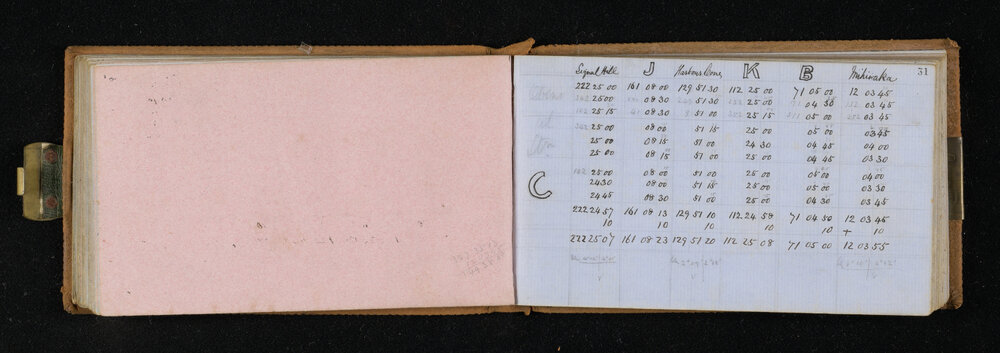 31
Signal Hill J Harbour Cone K B Mihiwaka
222 25 00 161 08 00 129 51 30 112 25 00 71 05 00 12 03 45
25 00 08 30 51 30 25 00 04 30 03 45
25 15 08 30 51 00 25 15 05 00 03 45
25 00 08 00 51 15 25 00 05 00 03 45
25 00 08 15 51 00 24 30 04 45 04 00
25 00 08 15 51 00 25 00 04 45 03 30
C
25 00 08 00 51 00 25 00 05 00 04 00
24 30 08 00 51 15 25 00 05 00 03 30
24 45 08 30 51 00 25 00 04 30 03 45
222 24 57 161 08 13 129 51 10 112 24 58 71 04 50 12 03 45
10 10 10 10 10 + 10
222 25 07 161 08 23 129 51 20 112 25 08 71 05 00 12 03 55